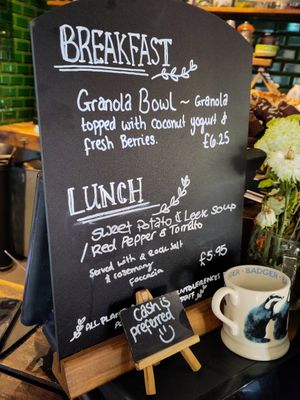 BREAKFAST
Granola Bowl ~ Granola
topped with coconut yogurt &
fresh Berries. £6.25
LUNCH
Sweet Potato & Leek Soup
/ Red Pepper & Tomato
Served with a rock salt
& rosemary
Foccacia £5.95
ALL PLA
INTOLERENCES
STAFF
cash is
preferred
BADGER